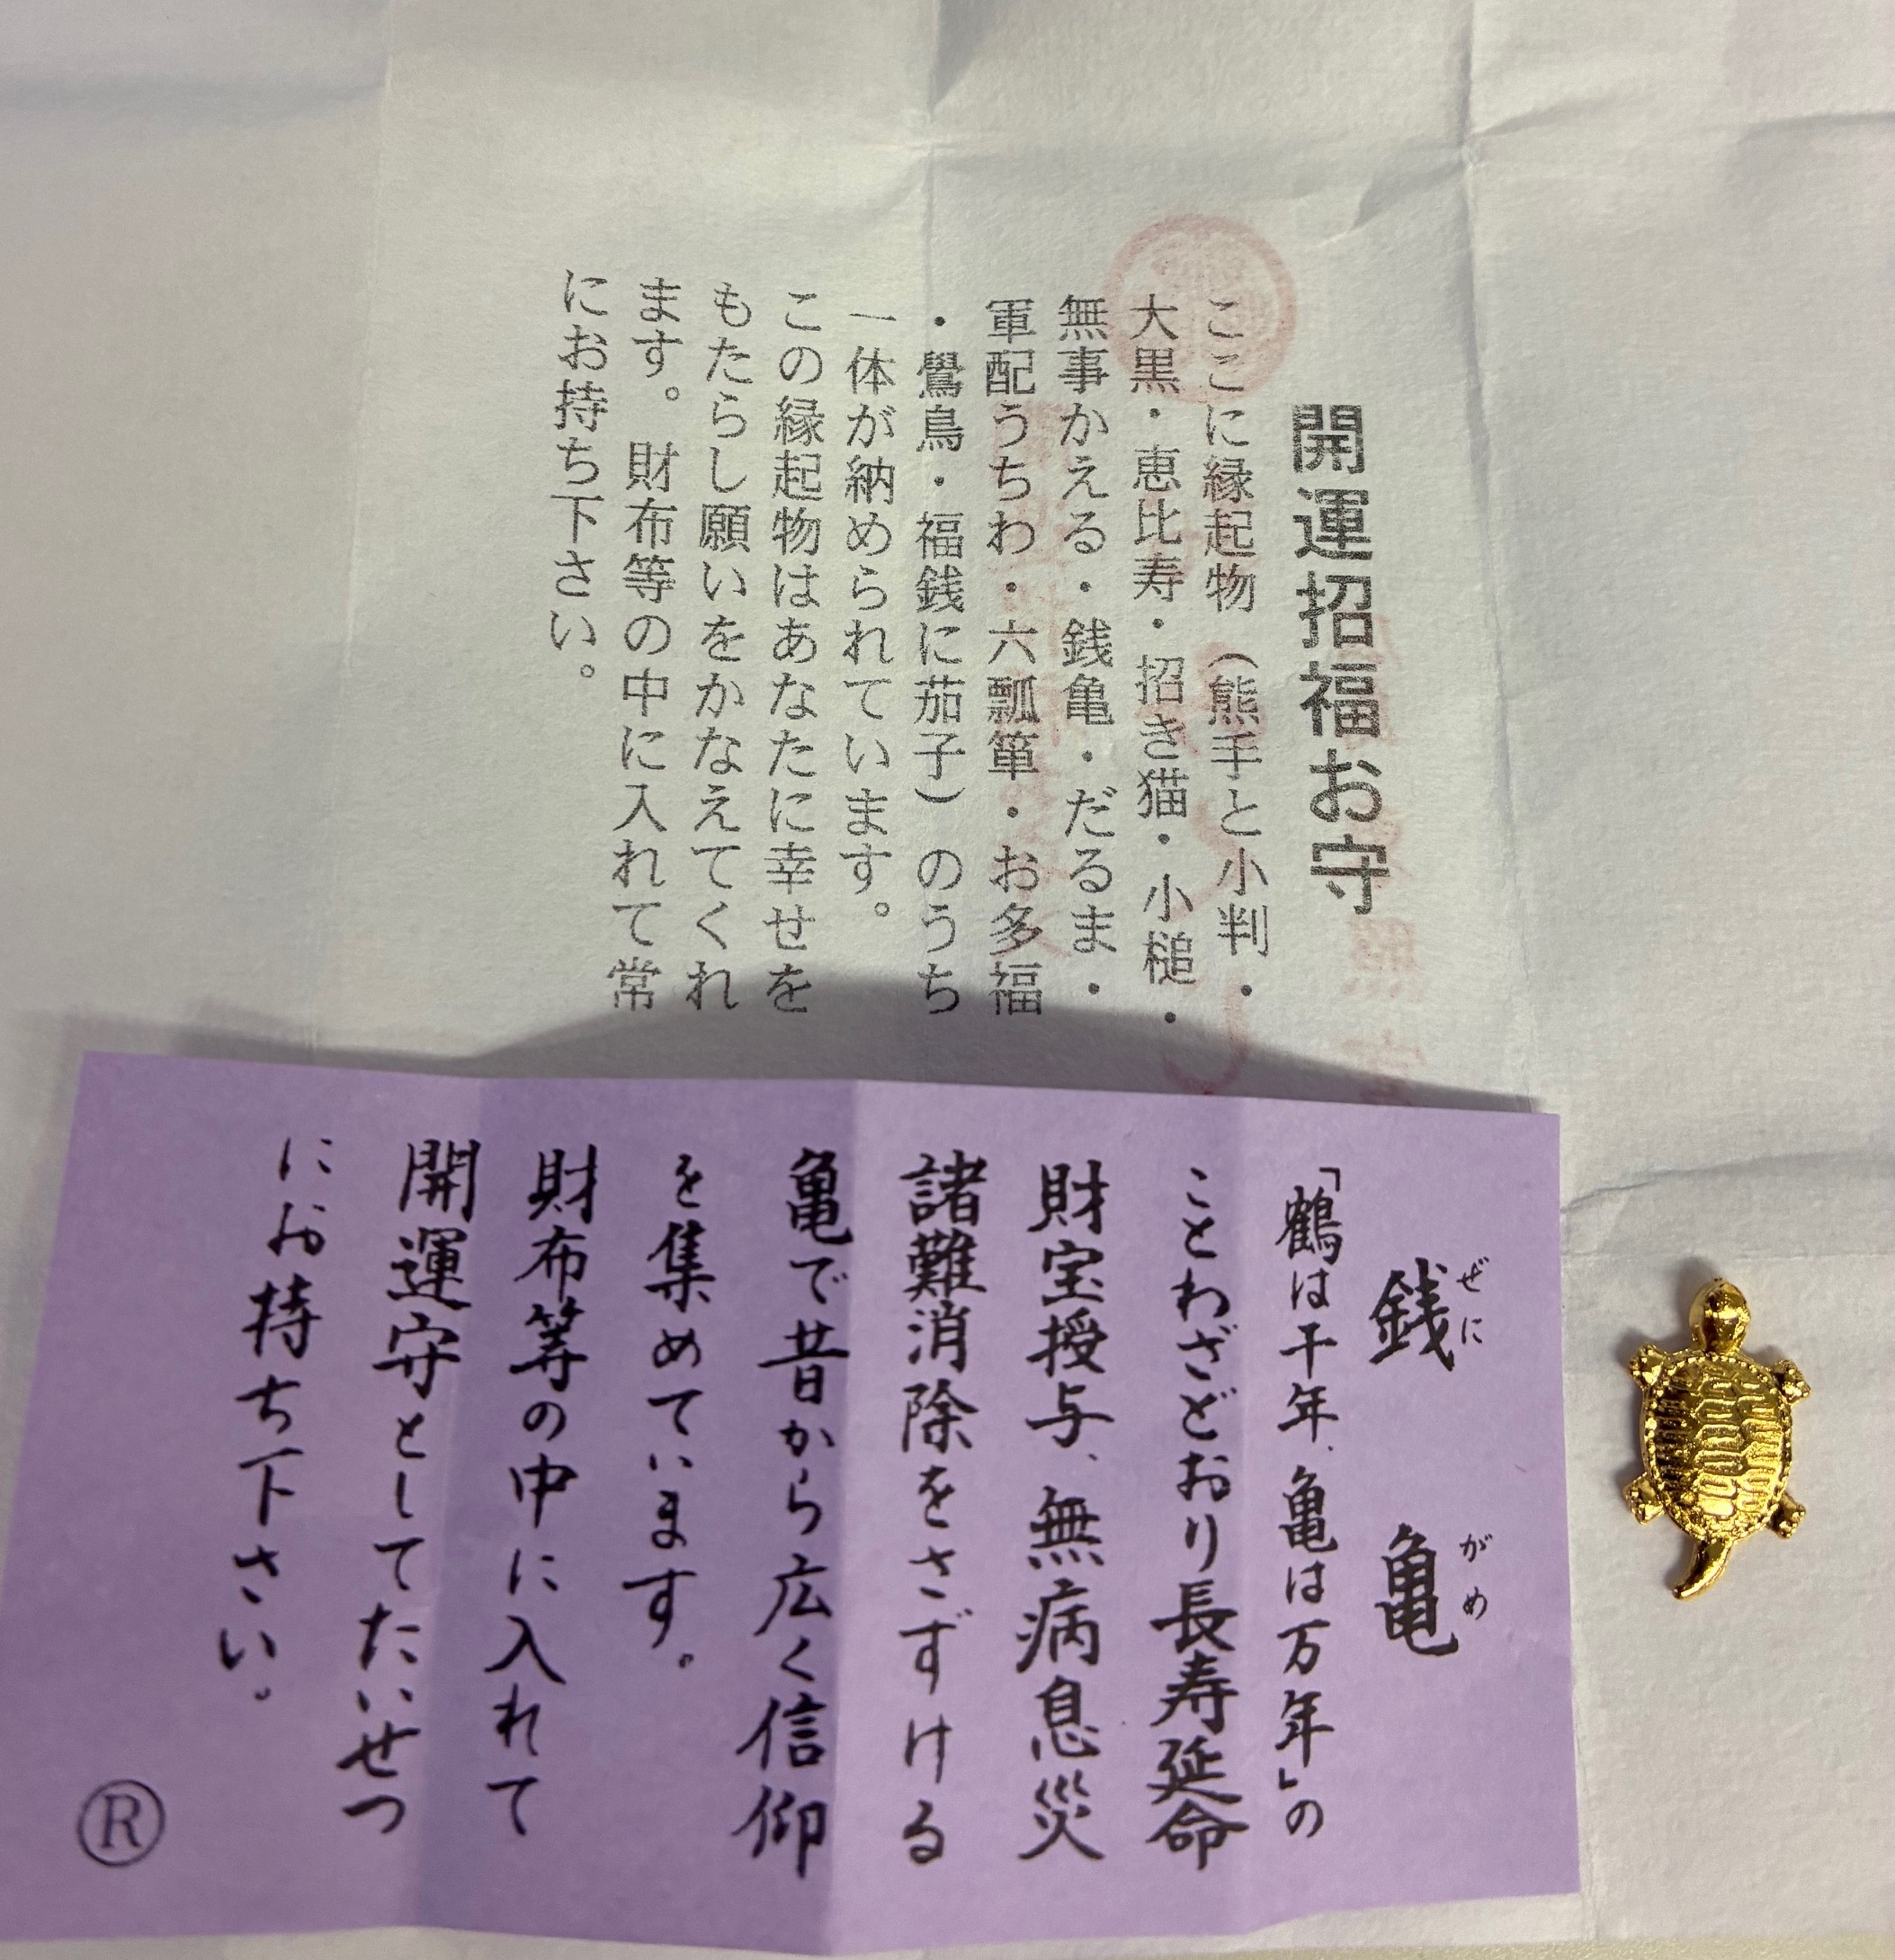 開運招福お守
ここに縁起物（熊手と小判・
大黒・恵比寿・招き猫・小槌・
無事かえる・銭亀・だるま・
軍配うちわ・六瓢箪・お多福
・鷽鳥・福銭に茄子）のうち
一体が納められています。
この縁起物はあなたに幸せを
もたらし願いをかなえてくれ
ます。財布等の中に入れて常
にお持ち下さい。
銭亀
ぜにがめ
「鶴は千年、亀は万年」の
ことわざどおり長寿延命
財宝授与、無病息災
諸難消除をさずける
亀で昔から広く信仰
を集めています。
財布等の中に入れて
開運守としてたいせつ
にお持ち下さい。
Ⓡ